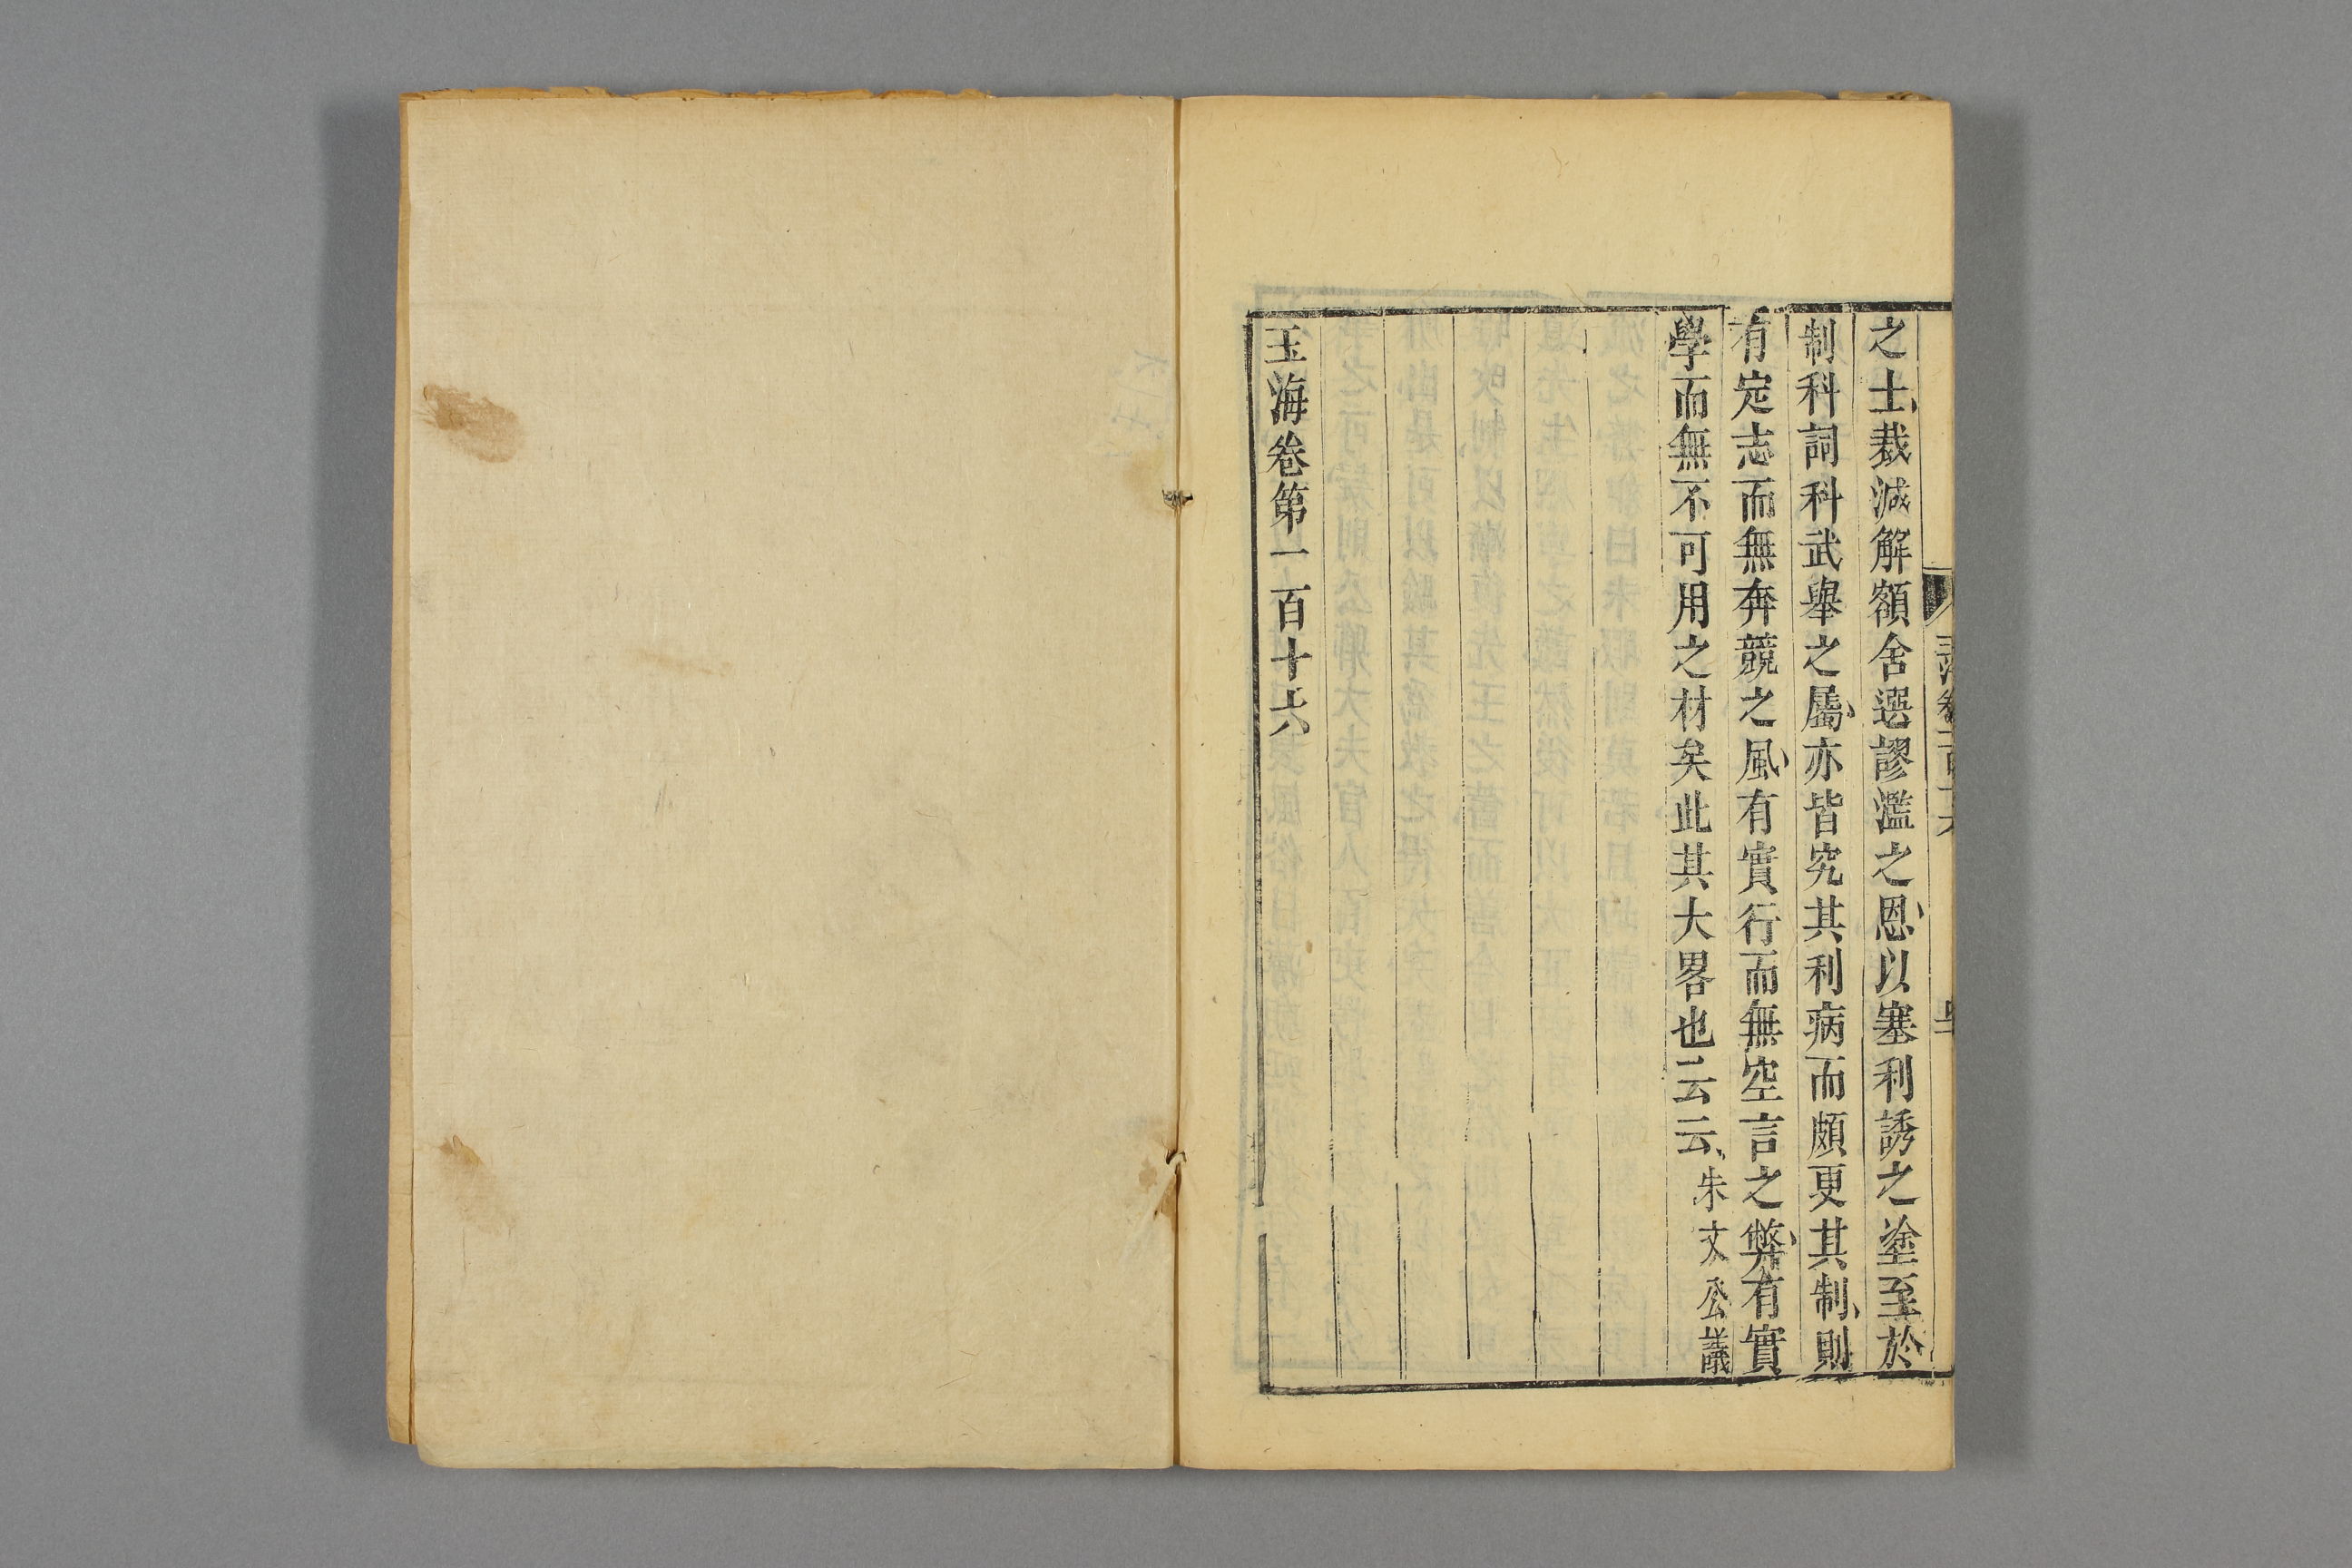 之士裁減解額舍選謬濫之恩以塞利誘之塗至於
制科詞科武舉之屬亦皆究其利病而頗更其制則
有定志而無奔競之風有實行而無空言之弊有實
學而無不可用之材矣此其大畧也云云朱文公議
玉海卷第一百十六